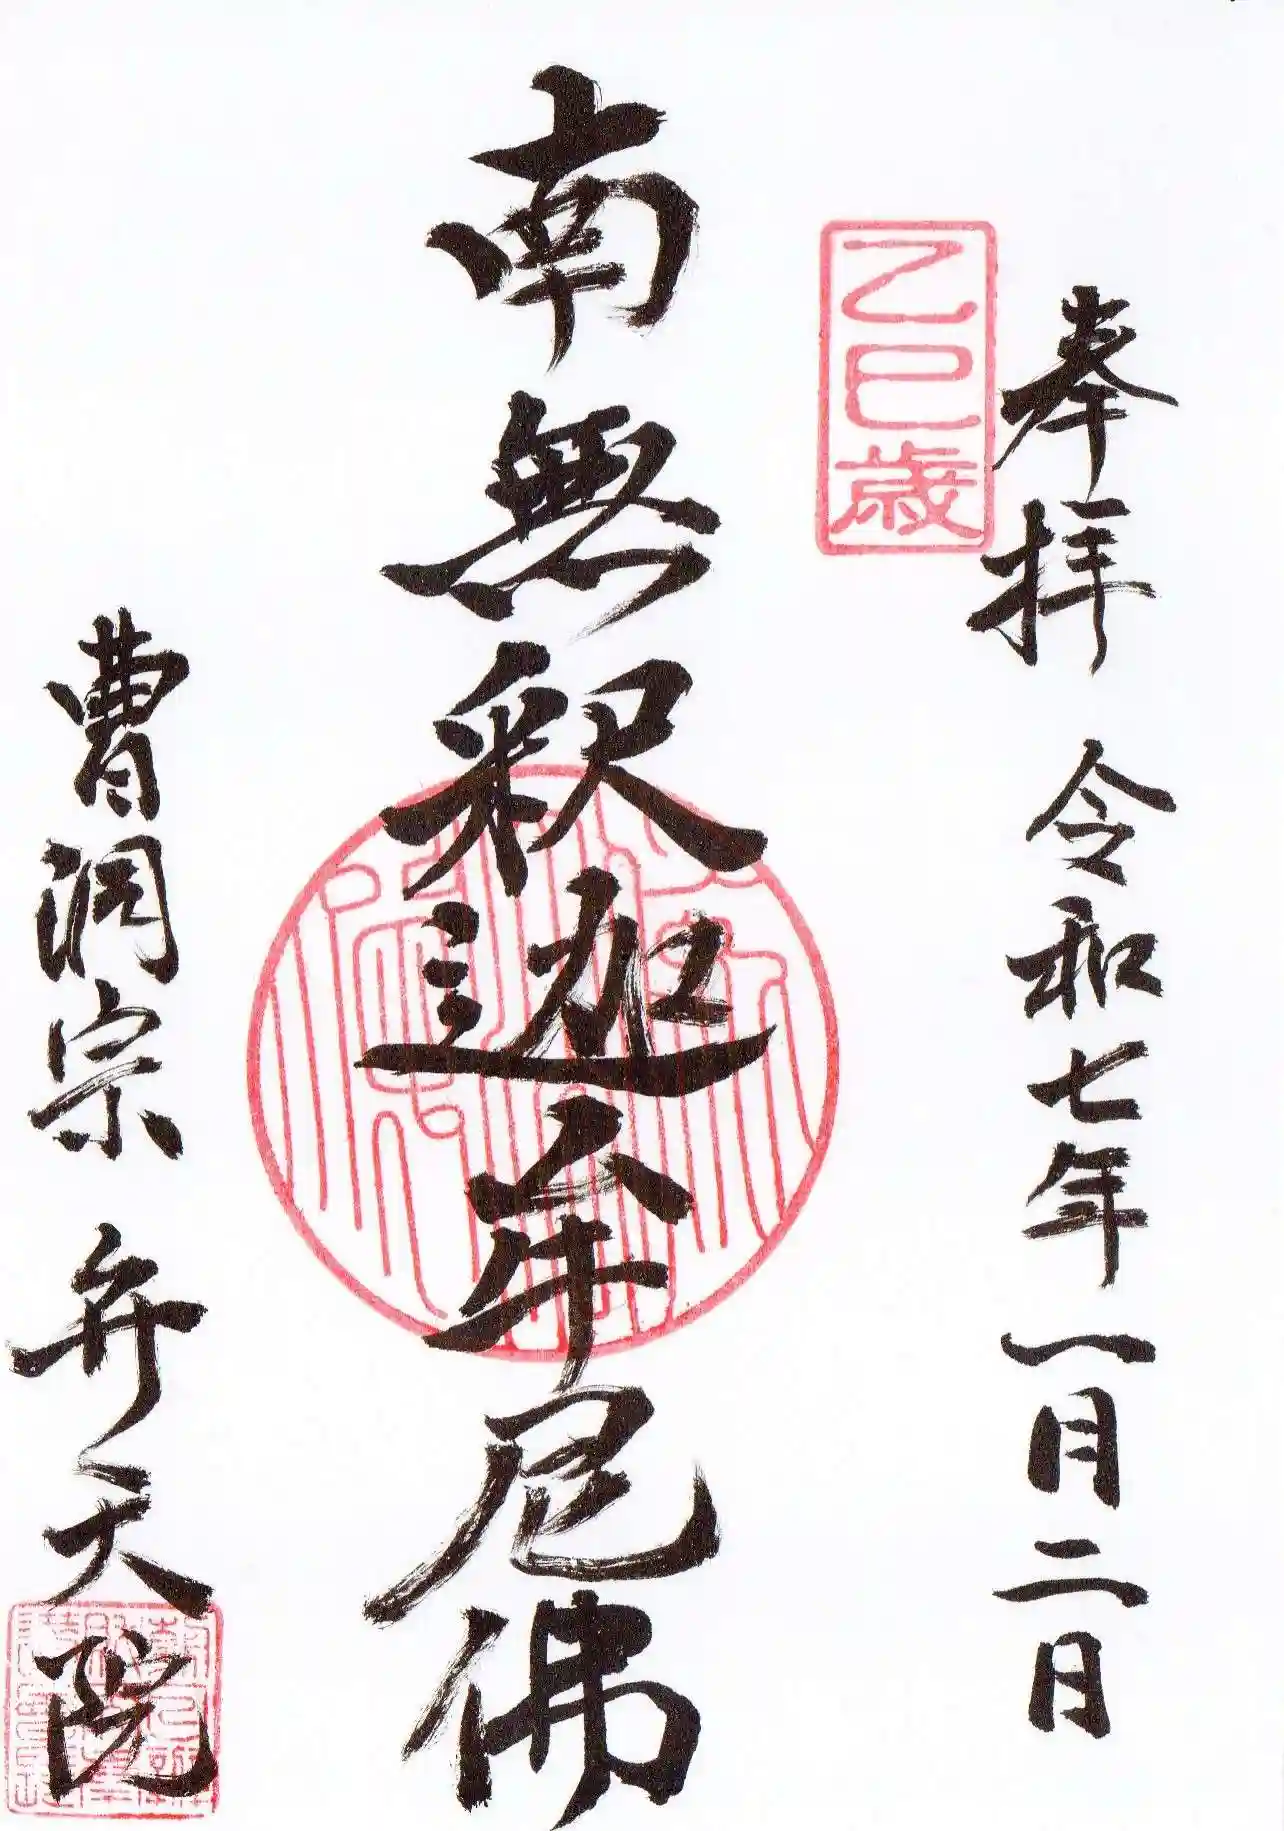 奉拝 令和七年一月二日
乙巳歳
南無釈迦牟尼佛
曹洞宗 弁天院